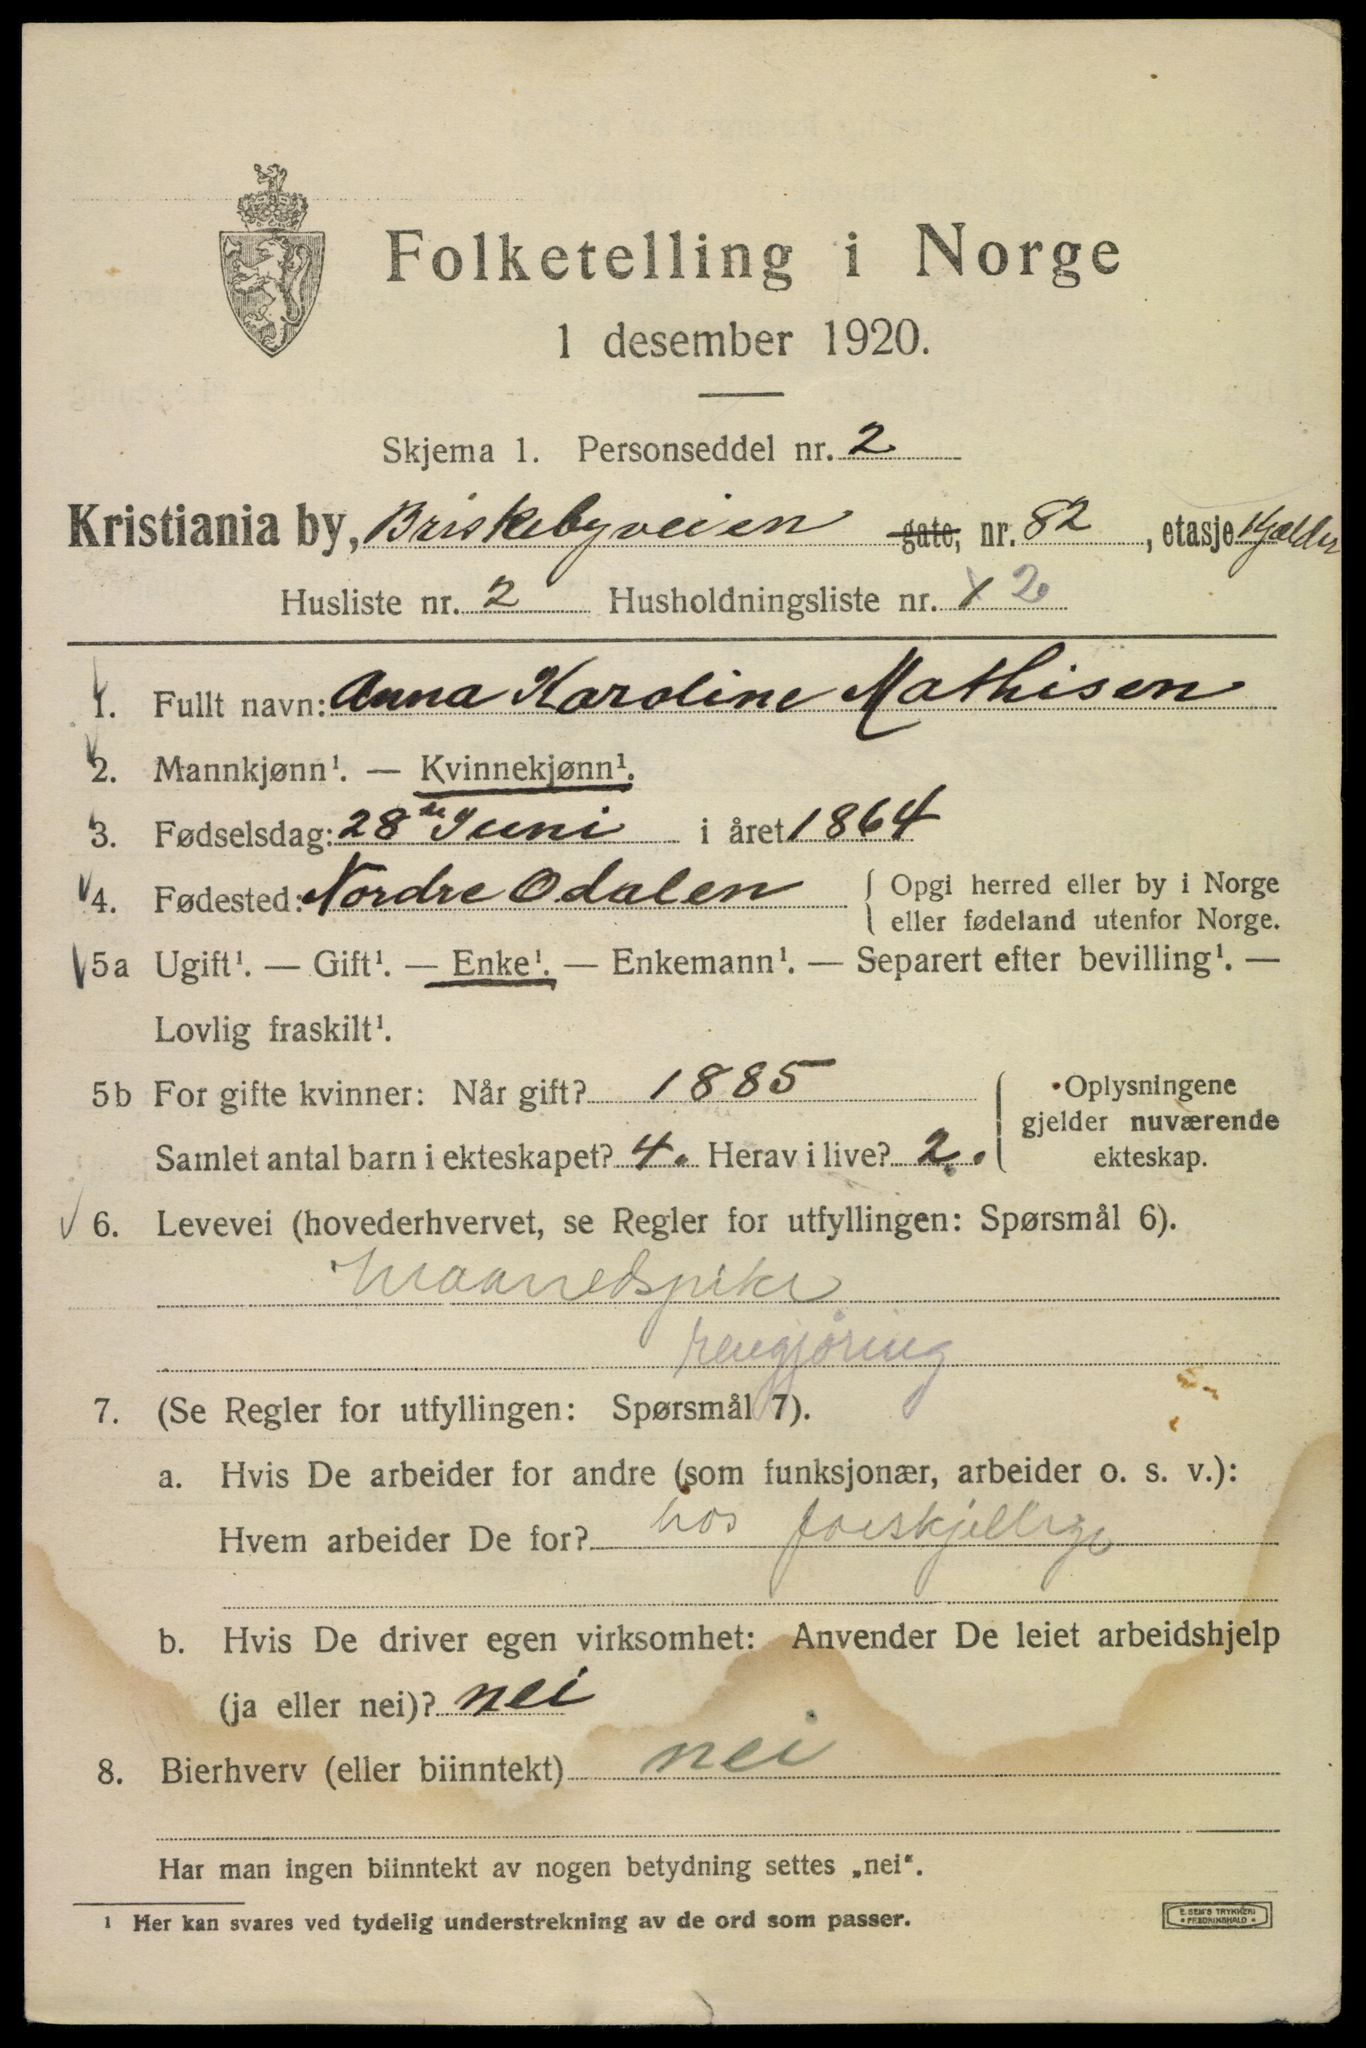 Folketelling i Norge
1 desember 1920.
Skjema 1. Personseddel nr. 2
Kristiania by, Briskebyveien gate, nr. 82, etasje Kjælder
Husliste nr. 2 Husholdningsliste nr. 2
1. Fullt navn: Anna Karoline Mathisen
2. Mannkjønn¹. — Kvinnekjønn¹.
3. Fødselsdag: 28de Juni i året 1864
4. Fødested: Nordre Odalen { Opgi herred eller by i Norge
eller fødeland utenfor Norge.
5a Ugift¹. — Gift¹. — Enke¹. — Enkemann¹. — Separert efter bevilling¹. —
Lovlig fraskilt¹.
5b For gifte kvinner: Når gift? 1885
Samlet antal barn i ekteskapet? 4. Herav i live? 2.
Oplysningene
gjelder nuværende
ekteskap.
6. Levevei (hovederhvervet, se Regler for utfyllingen: Spørsmål 6).
Maanedspike
rengjøring
7. (Se Regler for utfyllingen: Spørsmål 7).
a. Hvis De arbeider for andre (som funksjonær, arbeider o. s. v.):
Hvem arbeider De for? hos forskjellige
b. Hvis De driver egen virksomhet: Anvender De leiet arbeidshjelp
(ja eller nei)? nei
8. Bierhverv (eller biinntekt) nei
Har man ingen biinntekt av nogen betydning settes „nei“.
¹ Her kan svares ved tydelig understrekning av de ord som passer.
E. SEM'S TRYKKERI
• FREDRIKSHALD •